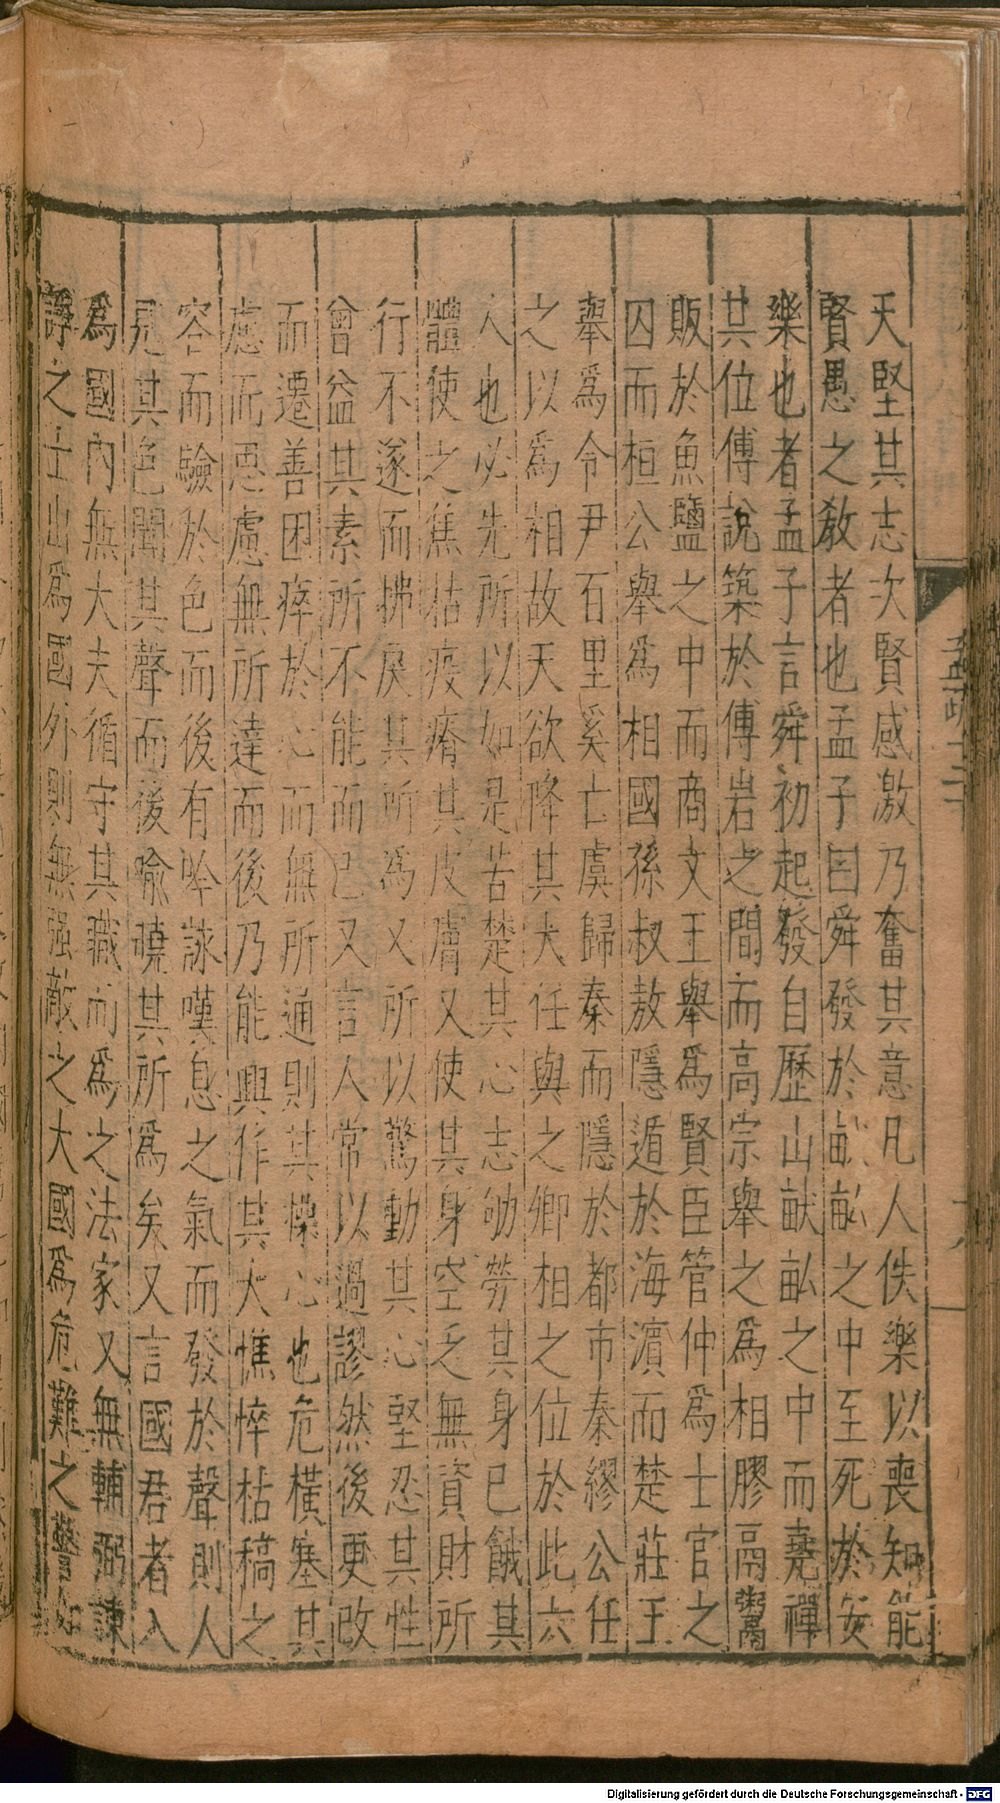 天堅其志次賢感激乃奮其意凡人佚樂以喪知能
賢愚之敘者也孟子曰舜發於畎畝之中至死於安
樂也者孟子言舜初起發自歷山畎畝之中而堯禪
其位傅說築於傅岩之間而高宗舉之為相膠鬲鬻
販於魚鹽之中而商文王舉為賢臣管仲為士官之
囚而桓公舉為相國孫叔敖隱遁於海濱而楚莊王
舉為令尹百里奚亡虞歸秦而隱於都市秦繆公任
之以為相故天欲降其大任與之卿相之位於此六
人也必先所以如是苦楚其心志劬勞其身已餓其
體使之焦枯疫瘠其皮膚又使其身空乏無資財所
行不遂而拂戾其所為又所以驚動其心堅忍其性
曾益其素所不能而已又言人常以過謬然後更改
而遷善困瘁於心而無所通則其操心也危橫塞其
慮而思慮無所達而後乃能興作其大憔悴枯槁之
容而驗於色而後有吟詠嘆息之氣而發於聲則人
見其色聞其聲而後喻曉其所為矣又言國君者入
為國內無大夫循守其職而為之法家又無輔弼諫
諍之士出為國外則無强敵之大國為危難之警如
孟疏十二
Digitalisierung gefördert durch die Deutsche Forschungsgemeinschaft - DFG